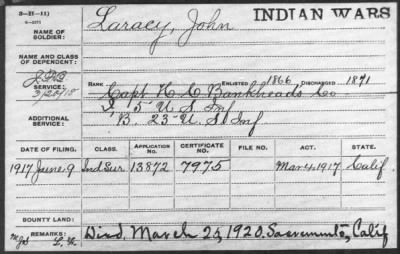 3-21-11)
NAME OF SOLDIER: Laracy, John INDIAN WARS
NAME AND CLASS OF DEPENDENT:
SERVICE: RANK ENLISTED 1866 DISCHARGED 1871
Capt H. C. Bankhead's Co
I, 5" U S Inf
ADDITIONAL SERVICE: B. 23" U. S. Inf
DATE OF FILING. CLASS. APPLICATION NUMBER. CERTIFICATE NO. FILE NO. ACT. STATE.
1917 June 9 Ind Sur 13872 7975 Mar 4, 1917 Calif.
BOUNTY LAND:
REMARKS: Died March 25, 1920. Sacramento, Calif